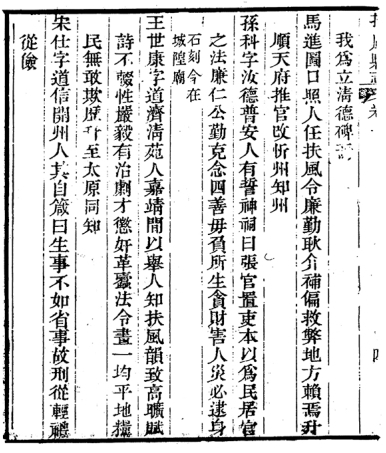 我爲立清德碑
馬進圖口照人任扶風令廉勤耿介補偏救弊地方賴焉升
順天府推官改忻州知州
孫科字汝德普安人有誓神祠曰張官置吏本以爲民居官
之法廉仁公勤克念四善毋負所生貪財害人災必逮身
石刻今在
城隍廟
王世康字道濟清苑人嘉靖間以舉人知扶風韻致高曠賦
詩不輟性嚴毅有治劇才懲奸革蠹法令畫一均平地糧
民無敢欺 至太原同知
宋仕字道信開州人其自箴曰生事不如省事故刑從輕禮
從儉